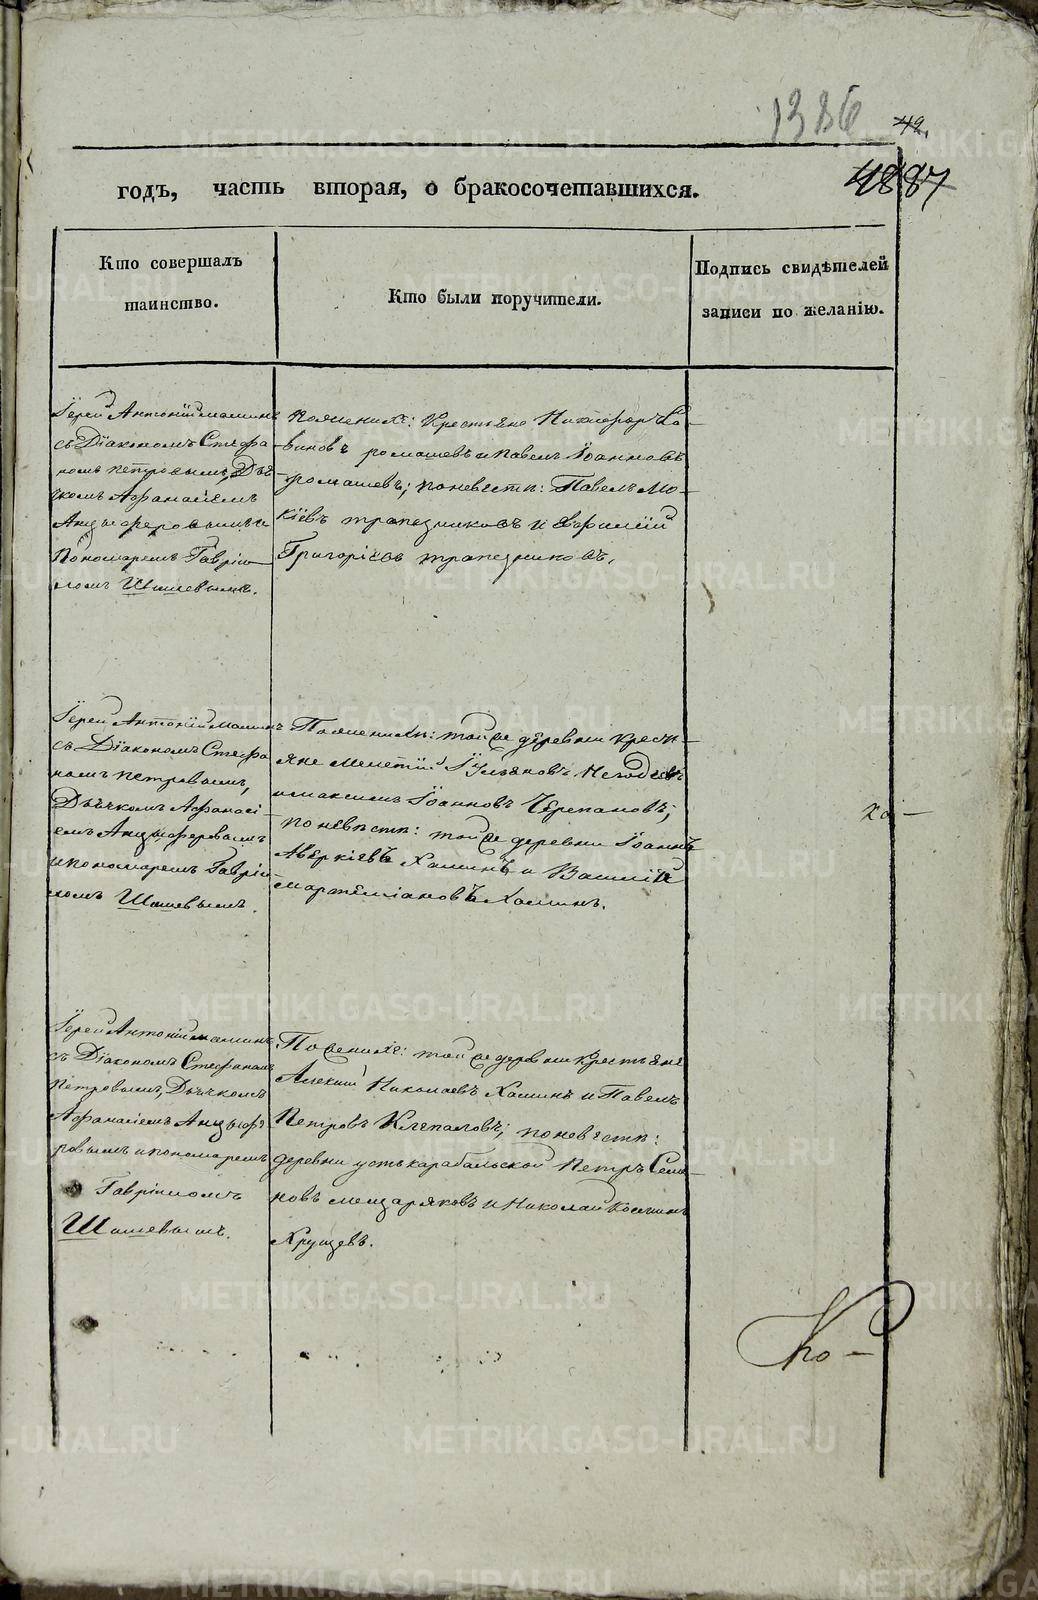 1386
42.
4887
годъ, часть вторая, о бракосочетавшихся.
Кто совершалъ
таинство.
Кто были поручители.
Подпись свидѣтелей
записи по желанію.
Іерей Антоній малинъ
съ Діакономъ Стефа
номъ петровымъ, Дьч
комъ Афанасіемъ
Анцыферовымъ и
Пономаремъ Гаврі
ломъ Шишевымъ.
Поженихѣ: Крестьяне Никифоръ Са-
виновъ ромашевъ и павелъ Іоанновъ
ромашевъ; поневѣстѣ: Павелъ Мо-
кіевъ трапезниковъ и Евфимій
Григоріевъ трапезниковъ.
Іерей Антоній Малинъ
съ Діакономъ Стефа
номъ петровымъ,
Дьячкомъ Афанасі-
емъ Анцыферовымъ
и пономаремъ Гаврі
ломъ Шишевымъ.
Поженихѣ: той же деревни кресть-
яне мелетій Ульяновъ
и максимъ Іоанновъ Черепановъ;
поневѣстѣ: той же деревни Іоаннъ
Аверкіевъ Халинъ и Василій
мартеміановъ Халинъ.
ка —
Іерей Антоній малинъ
съ Діакономъ Стефаномъ
петровымъ, Дьячкомъ
Афанасіемъ Анцыфе-
ровымъ и пономаремъ
Гавріиломъ
Шишевымъ.
Поженихѣ: той же деревни крестьяне
Алексий Николаевъ Халинъ и Павелъ
Петровъ Клепаловъ; поневѣстѣ:
деревни устькарабольской Петръ Семе-
новъ мещаряковъ и Николай
Хрущевъ.
По —
METRIKI.GASO-URAL.RU